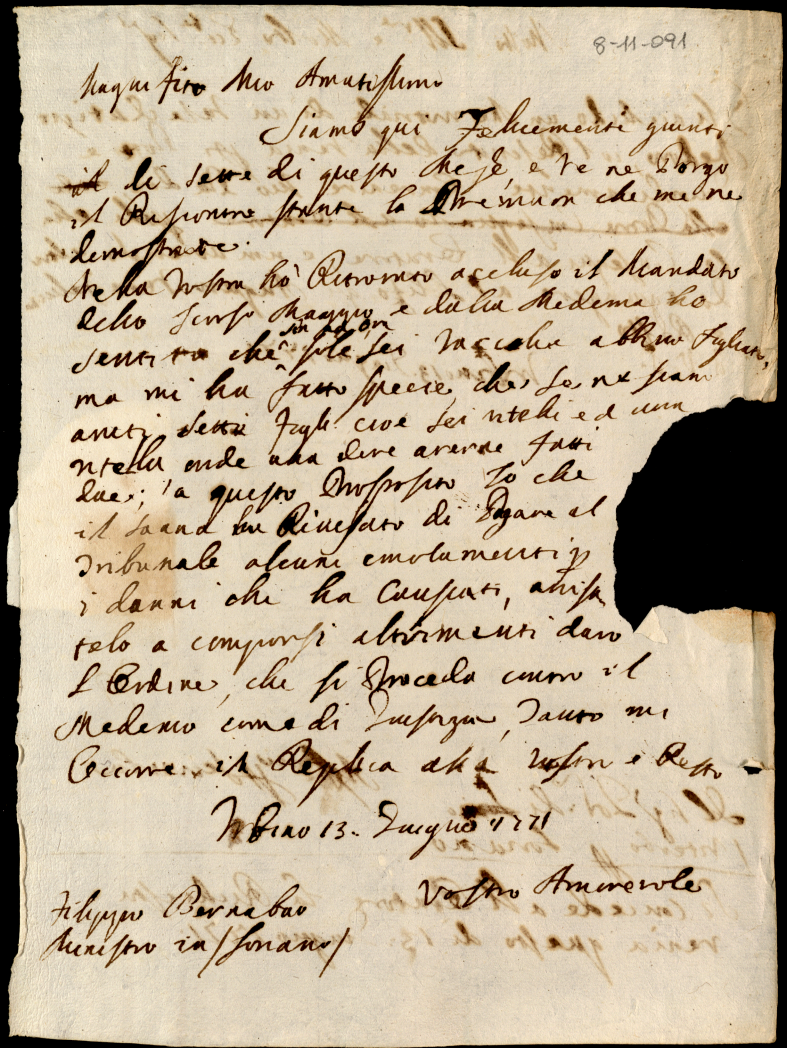 8-11-091
Magnifico Mio Amatissimo
Siamo qui Felicemente giunti
il di sette di questo Mese, e ve ne Porgo
il Riscontro stante la Premura che me ne
demostrate.
Nella Vostra hò Ritrovato accluso il Mandato
dello scorso Maggio e dalla Medema ho
sentito che sin ad ora sole sei Vacche abbino figliato,
ma mi ha fatto specie, che se ne siano
avuti sette figli cioe sei vitelli ed una
vitella onde una deve averne fatti
due; a questo Proposito so che
il ha Ricusato di Pagare al
Tribunale alcuni emolumenti p
i danni che ha Causati, avisa
telo a comporsi altrimenti daro
l'Ordine, che si Proceda contro il
Medemo come di Giustizia, Tanto mi
Occorre in Replica alla Vostra e Resto
13. Giugno 1771
Vostro Amorevole
Filippo Bernabao
Ministro in /Soriano/